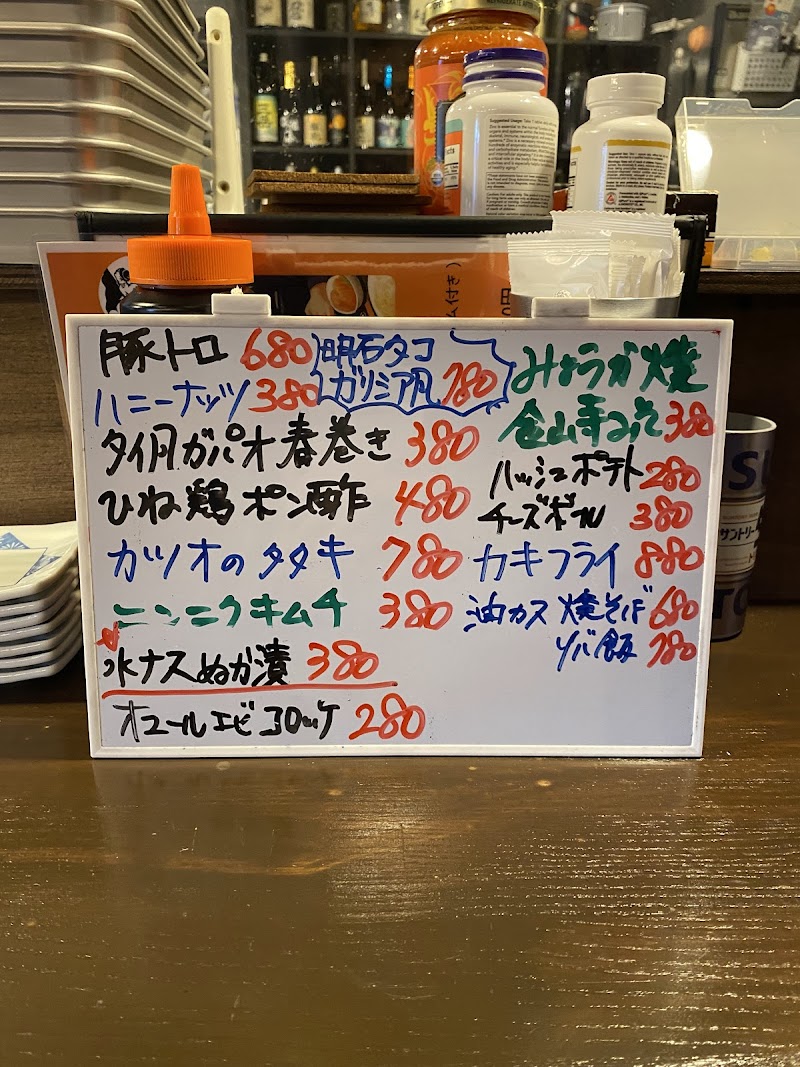 豚トロ 680
ハニーナッツ 380
明石タコ
ガリシア風 780
タイ風ガパオ春巻き 380
ひね鶏ポン酢 480
カツオのタタキ 780
ニンニクキムチ 380
水ナスぬか漬 380
オマールエビコロッケ 280
みょうが焼
金山寺みそ 380
ハッシュポテト 280
チーズボール 380
カキフライ 880
油カス焼そば 680
ソバ飯 780
サントリー
Suggested Usage:
ム付き)